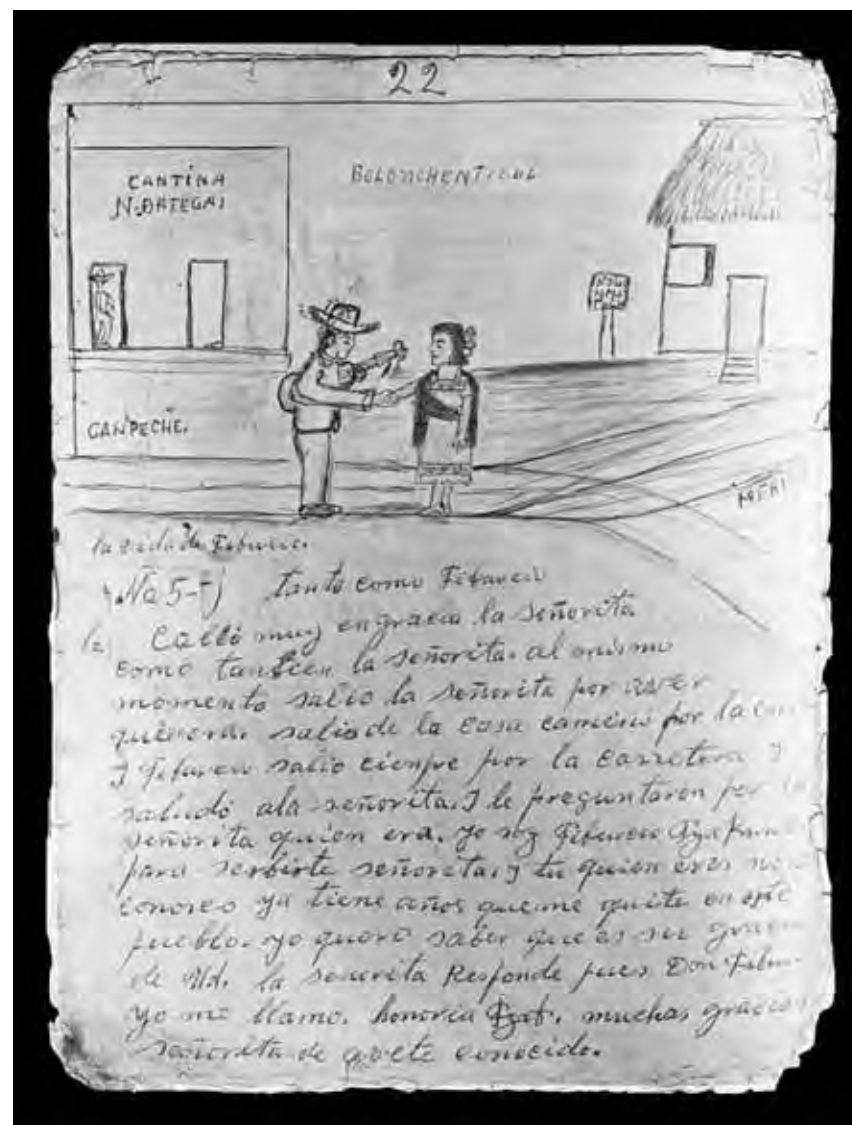 22
CANTINA
N. ORTEGAS
BOLONCHENTICUL
CANPECHE.
la vida de Tiburcio.
(No 5-5) tanto como Tiburcio
Calló muy en gracia la señorita
como tanbien la señorita. al mismo
momento salio la señorita por aver
quienera. salio de la casa caminó por la
y Tiburcio salio cienpre por la carretera y
saludó ala señorita. y le preguntaron por la
señorita quien era. yo soy Tiburcio
para serbirte señorita. y tu quien eres no
conosco ya tiene años que me quite en este
pueblo. yo quero saber que es su gracia
de Ud. la señorita Responde pues Don
yo me llamo. honoria muchas gracias
señorita de averte conocido.